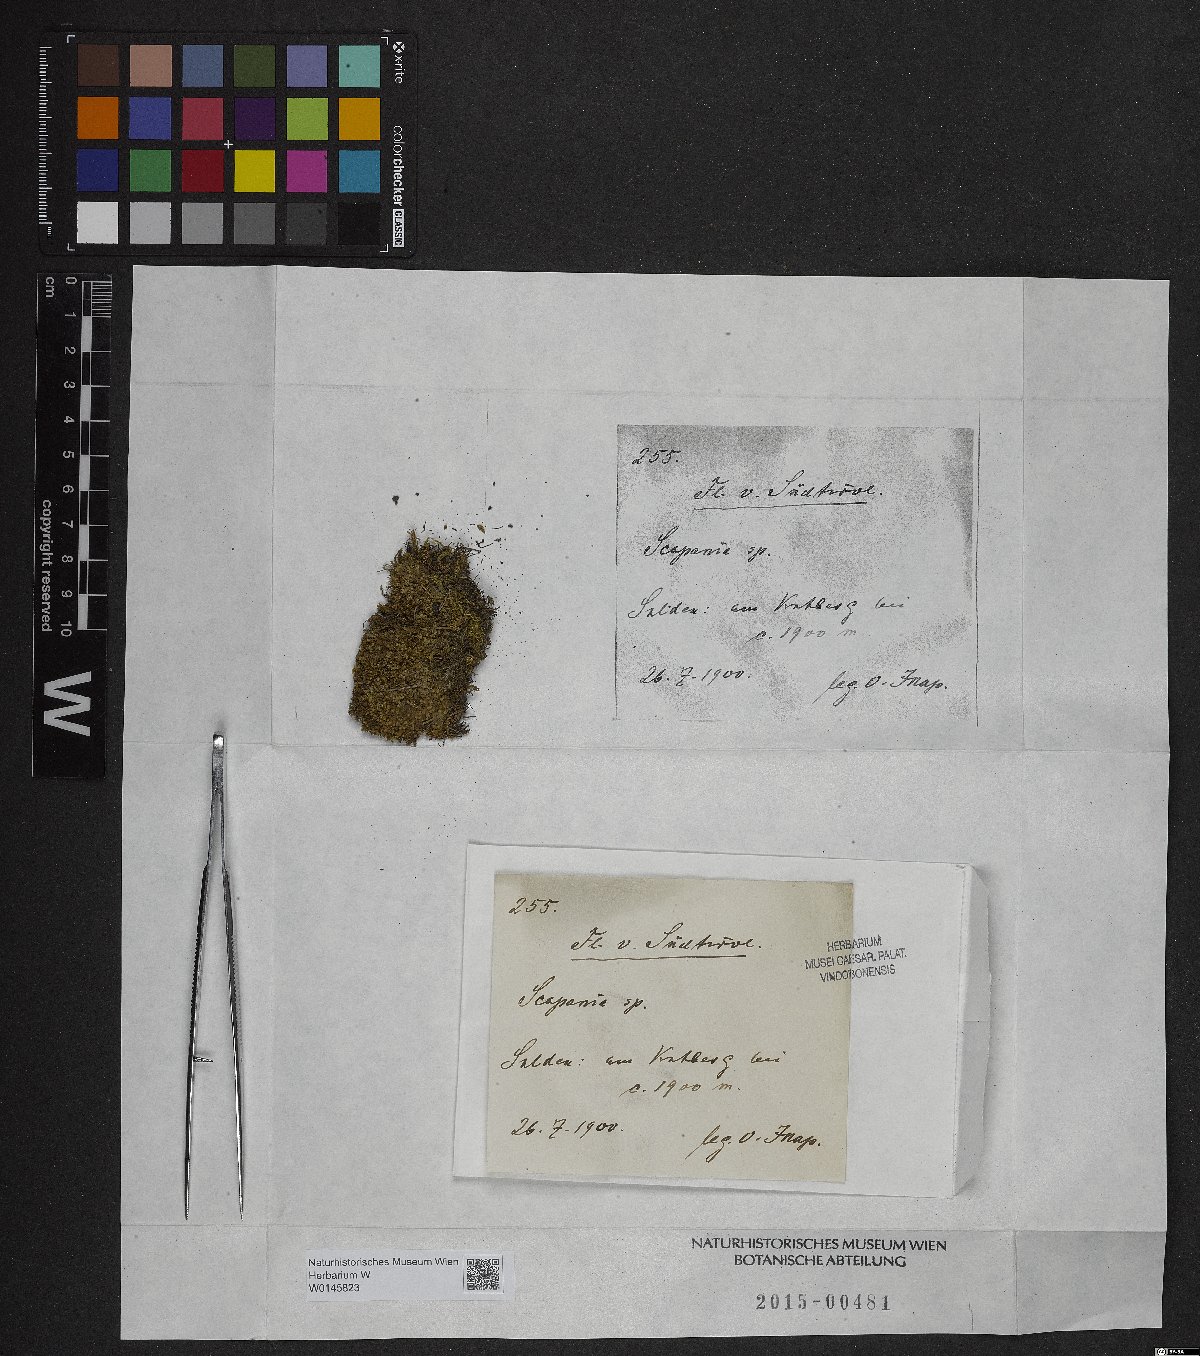 x-rite
colorchecker CLASSIC
cm
0 1 2 3 4 5 6 7 8 9 10
copyright reserved
W
255.
Fl. v. Südtirol.
Scapania sp.
Sulden: am Kuhberg bei
c. 1900 m
26.7.1900.
leg. O.
255.
Fl. v. Südtirol.
Scapania sp.
Sulden: am Kuhberg bei
c. 1900 m.
26.7.1900.
leg. O.
HERBARIUM
MUSEI CAESAR. PALAT.
VINDOBONENSIS
Naturhistorisches Museum Wien
Herbarium W
W0145823
NATURHISTORISCHES MUSEUM WIEN
BOTANISCHE ABTEILUNG
2015-00481